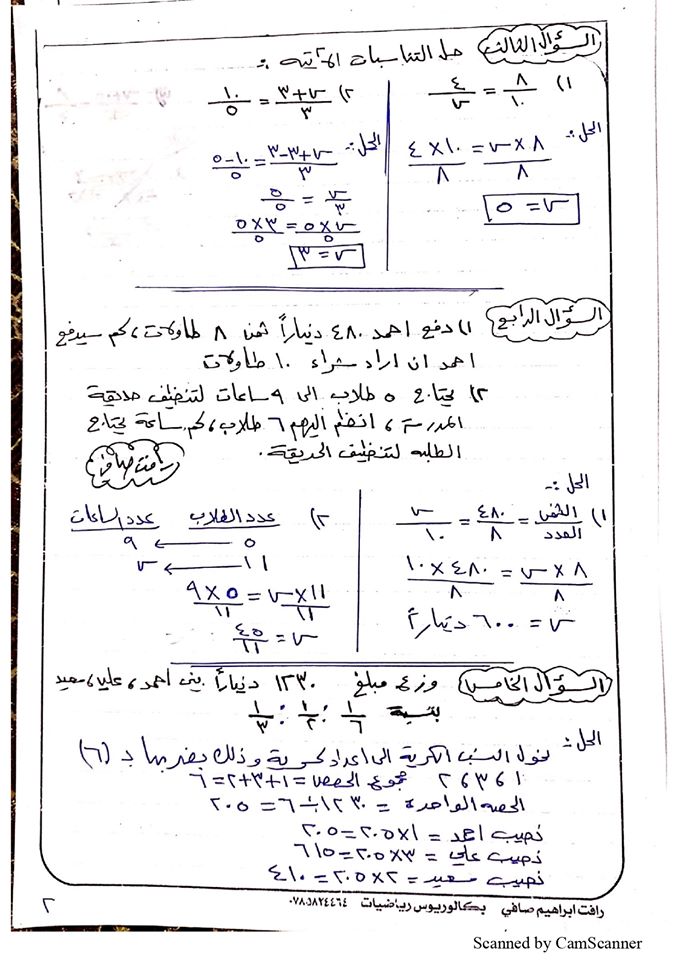 السؤال الثالث حل التناسبات الآتية :
١) ٨/١٠ = ٤/س
الحل :-
٤×١٠/٨ = س×٨/٨
س = ٥
٢) ٣+س/٣ = ١٠/٥
الحل :-
س+٣-٣/٣ = ١٠-٥/٥
س/٣ = ٥/٥
س×٥/٥ = ٣×٥/٥
س = ٣
السؤال الرابع ١) دفع احمد ٤٨٠ ديناراً ثمن ٨ طاولات، كم سيدفع
احمد ان اراد شراء ١٠ طاولات
٢) يحتاج ٥ طلاب الى ٩ ساعات لتنظيف حديقة
المدرسة، انظم اليهم ٦ طلاب، كم ساعة يحتاج
الطلبه لتنظيف الحديقة.
رأفت صافي
الحل :-
١) الثمن/العدد = ٤٨٠/٨ = س/١٠
س×٨/٨ = ٤٨٠×١٠/٨
س = ٦٠٠ ديناراً
٢) عدد الطلاب عدد الساعات
٥ ← ٩
١١ ← س
س×١١/١١ = ٥×٩/١١
س = ٤٥/١١
السؤال الخامس وزع مبلغ ١٢٣٠ ديناراً بين أحمد، علي، سعيد
بنسبة ١/٦ : ١/٢ : ١/٣
الحل :- نحول النسب الكسرية الى اعداد وذلك بضربها بـ (٦)
١ ، ٣ ، ٢ مجموع الحصص = ١+٣+٢ = ٦
الحصه الواحدة = ١٢٣٠÷٦ = ٢٠٥
نصيب احمد = ١×٢٠٥ = ٢٠٥
نصيب علي = ٣×٢٠٥ = ٦١٥
نصيب سعيد = ٢×٢٠٥ = ٤١٠
رافت ابراهيم صافي بكالوريوس رياضيات ٠٧٨٥٨٢٤٤٦٤
٢
Scanned by CamScanner